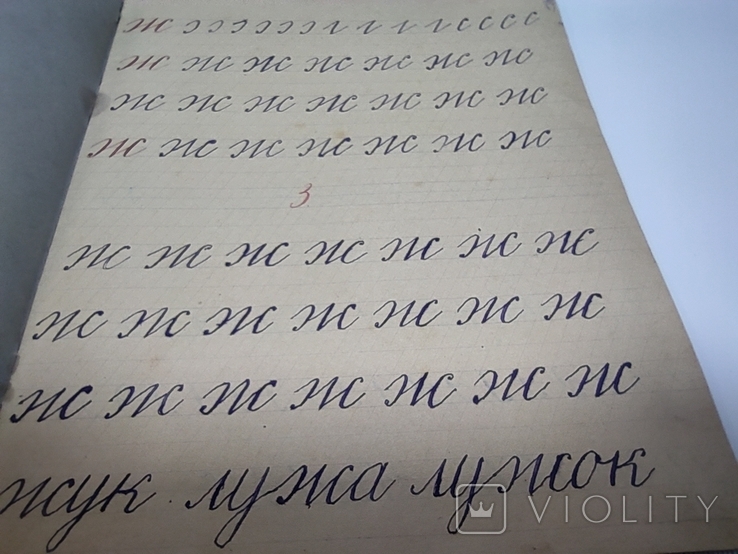 ж э э э э э г г г г с с с с
ж ж ж ж ж ж ж
ж ж ж ж ж ж ж
ж ж ж ж ж ж ж
3
ж ж ж ж ж ж ж
ж ж ж ж ж ж ж
ж ж ж ж ж ж ж
жук лужа лужок
VIOLITY